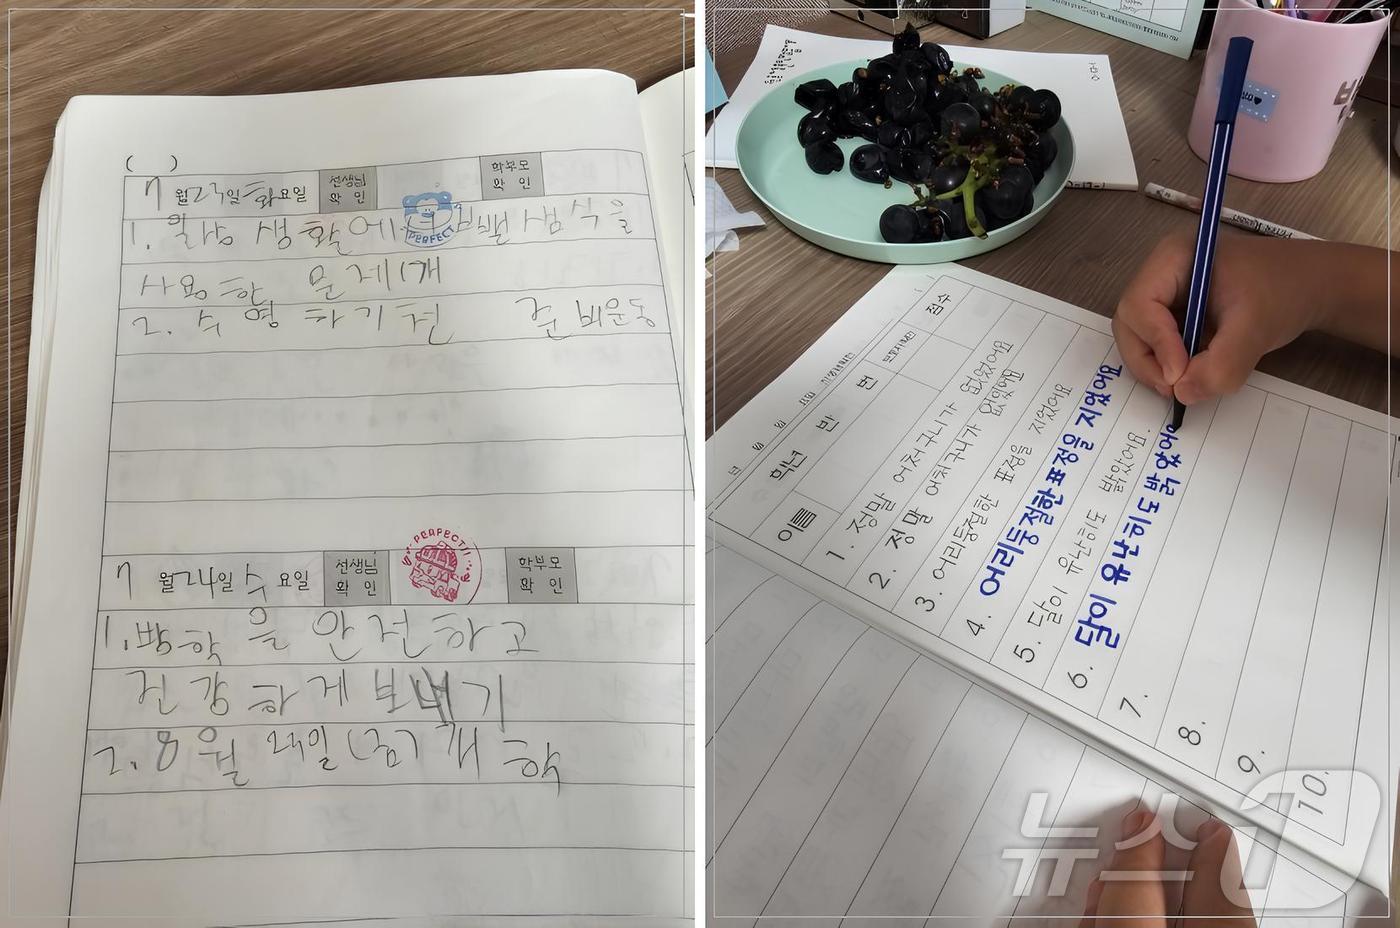 ( )
7 월 23일 화요일 선생님 확인 학부모 확인
1. 생활에서 뺄셈식을
사용한 문제 1개
2. 수영하기 전 준비운동
PERFECT
7 월 24일 수 요일 선생님 확인 학부모 확인
PERFECT!!
1. 방학을 안전하고
건강하게 보내기
2. 8월 23일 (금) 개학
년 월 일 요일
학년 반 번
이름 점수
1. 정말 어처구니가 없었어요
2. 정말 어처구니가 없었어요
3. 어리둥절한 표정을 지었어요
4. 어리둥절한 표정을 지었어요
5. 달이 유난히도 밝았어요.
6. 달이 유난히도 밝았어
7.
8.
9.
10.
뉴스1